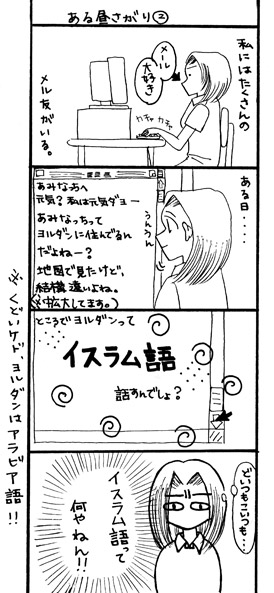 ある昼さがり②
私にはたくさんの
メル友がいる。
メール
大好き
カチャ カチャ
ある日・・・・
うんうん
あみな方へ
元気?私は元気ダョー
あみなっちって
ヨルダンに住んでるん
だよねー?
地図で見たけど、
結構遠いよね。
(※拡大してます。)
ところでヨルダンって
イスラム語
話すんでしょ?
どいつもこいつも・・・
イスラム語って
何やねん!!
※くどいケド、ヨルダンはアラビア語!!